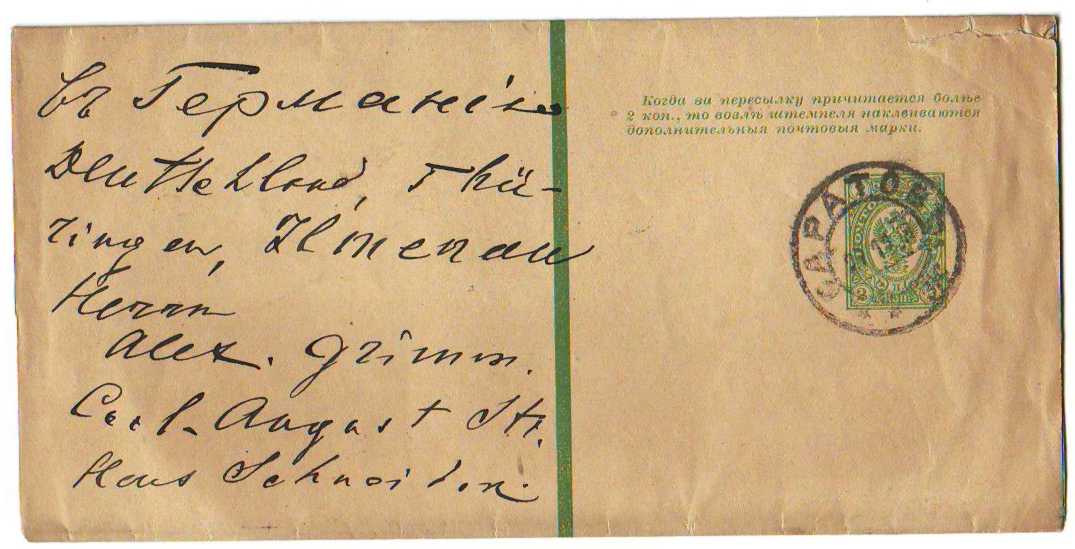 въ Германію
Deutschland, Thü-
ringen, Ilmenau
Herrn
Alex. Grimm.
Carl-August Str.
Haus Schneider.
Когда за пересылку причитается болѣе
2 коп., то возлѣ штемпеля наклеиваются
дополнительныя почтовыя марки.
САРАТОВЪ